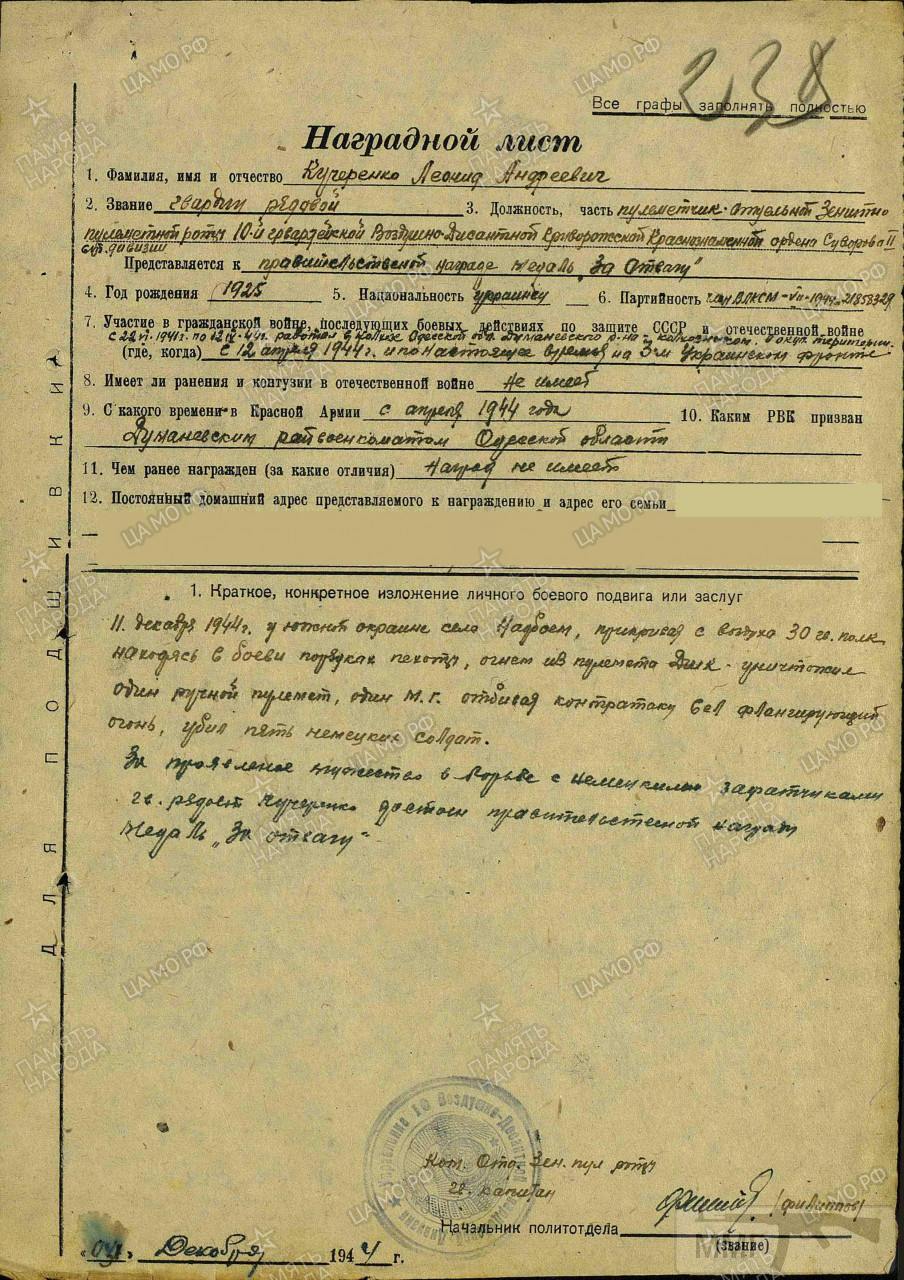 238
Все графы заполнять полностью
Наградной лист
1. Фамилия, имя и отчество Кучеренко Леонид Андреевич
2. Звание гвардии рядовой 3. Должность, часть пулеметчик Отдельной Зенитно
пулеметной роты 10-й гвардейской Воздушно-Десантной Криворожской Краснознаменной ордена Суворова II
ст. дивизии
Представляется к правительственой награде медаль "За Отвагу"
4. Год рождения 1925 5. Национальность украинец 6. Партийность член ВЛКСМ-VII-1944г. 21858329
7. Участие в гражданской войне, последующих боевых действиях по защите СССР и отечественной войне
с 22 VI-1941г. по 12 IV-44г. работал в Одесской обл. Думаневского р-на колхозником. окуп. територии.
(где, когда) с 12 апреля 1944г. и по настоящее время на 3-м Украинском фронте
8. Имеет ли ранения и контузии в отечественной войне Не имеет
9. С какого времени в Красной Армии с апреля 1944 года 10. Каким РВК призван
Думаневским райвоенкоматом Одесской области
11. Чем ранее награжден (за какие отличия) Наград не имеет
12. Постоянный домашний адрес представляемого к награждению и адрес его семьи
1. Краткое, конкретное изложение личного боевого подвига или заслуг
11. декабря 1944г. у южной окраине села прикривая с воздуха 30 гв. полк
находясь в боеви порядках пехоты, огнем из пулемета ДШК уничтожил
один ручной пулемет, один м.г. отбивая контратаку вел флангирующий
огонь, убил пять немецких солдат.
За проявленое мужество в борьбе с немецкими захватчиками
гв. рядовой Кучеренко достоин правительственной награды
Медаль "За отвагу"
ДЛЯ ПОДШИВКИ
Управление 10 Воздушно-Десантной
Ком. Отд. Зен. пул роты
гв. капитан (Филиппов)
Начальник политотдела
(звание)
Декабря 1944 г.
ПАМЯТЬ НАРОДА
ЦАМО РФ